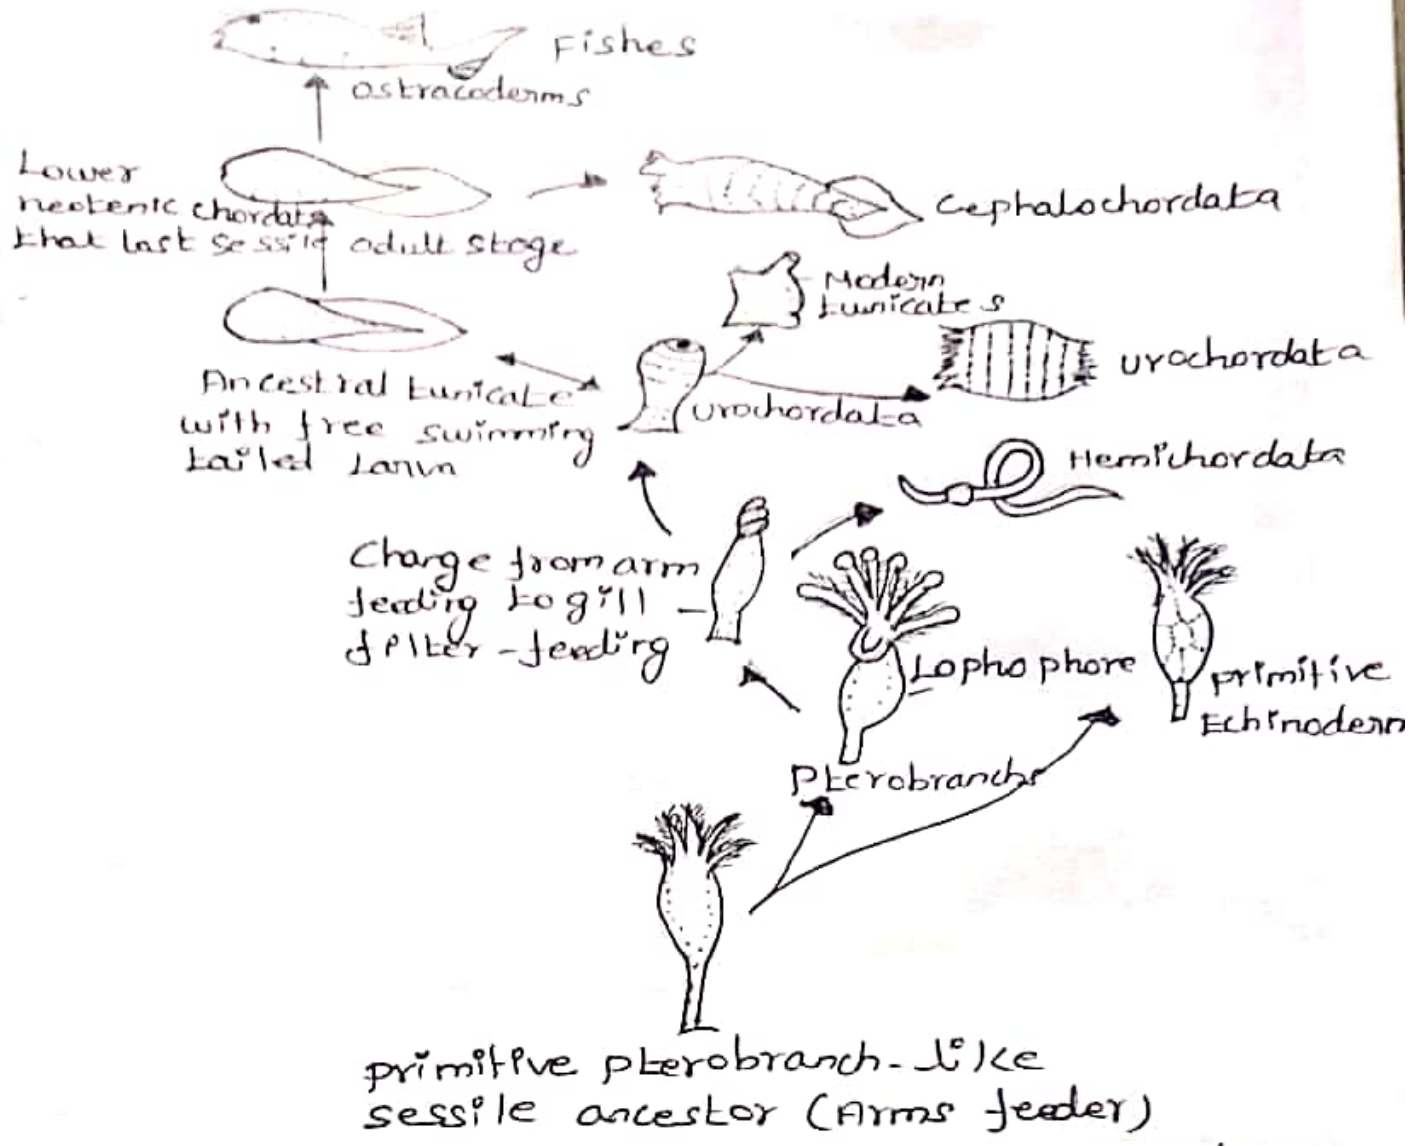 Fishes
Ostracoderms
Lower
neotenic chordata
that last sessile adult stage
Cephalochordata
Modern
tunicates
Urochordata
Ancestral tunicate
with free swimming
tailed Larva
Urochordata
Hemichordata
Change from arm
feeding to gill
filter-feeding
Lophophore
primitive
Echinoderm
Pterobranchs
primitive pterobranch-like
sessile ancestor (Arms feeder)